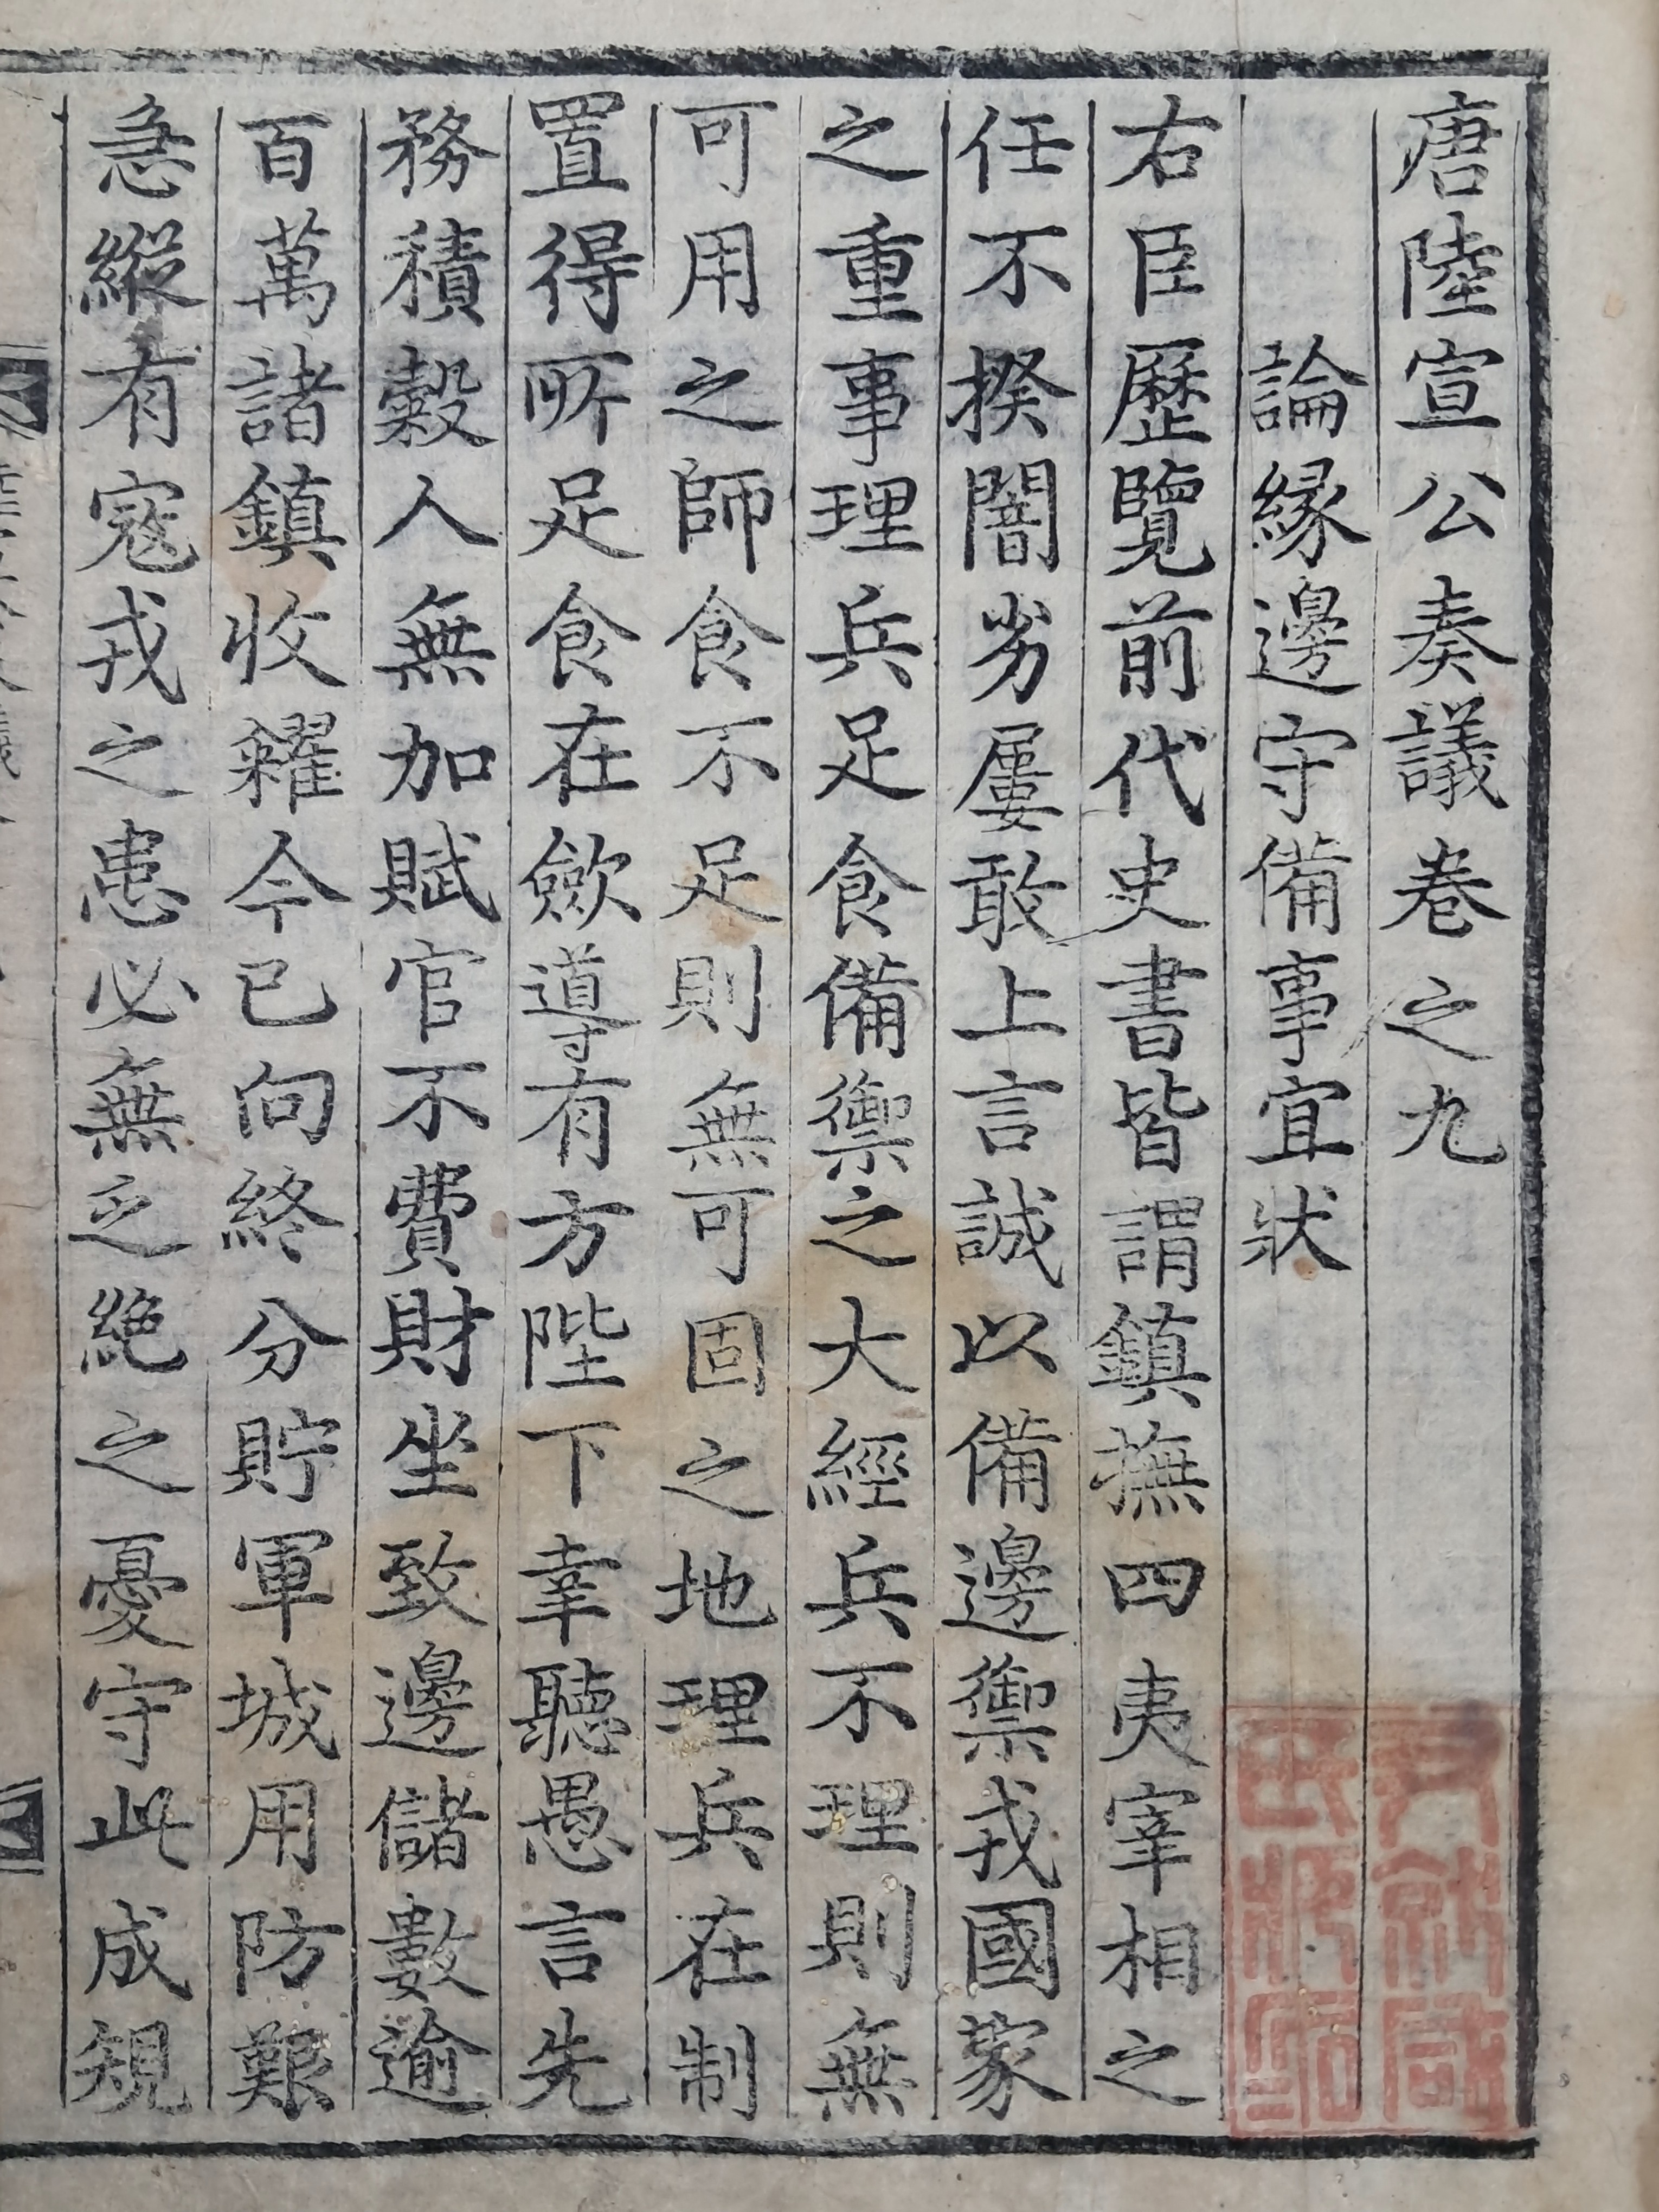 唐陸宣公奏議卷之九
論緣邊守備事宜狀
右臣歷覽前代史書皆謂鎮撫四夷宰相之
任不揆闇劣屢敢上言誠以備邊禦戎國家
之重事理兵足食備禦之大經兵不理則無
可用之師食不足則無可固之地理兵在制
置得所足食在歛導有方陛下幸聽愚言先
務積穀人無加賦官不費財坐致邊儲數逾
百萬諸鎮收糴今已向終分貯軍城用防艱
急縱有寇戎之患必無乏絕之憂守此成規